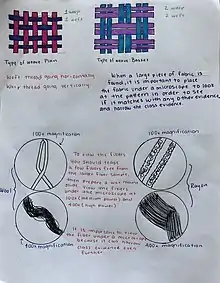 1 warp
1 weft
2 warp
2 weft
Type of weave Plain
Type of weave Basket
Weft thread going horizontally
Warp thread going vertically
When a large piece of fabric is
found, it is important to place
the fabric under a microscope to look
at the pattern in order to see
if it matches with any other evidence
and narrow the class evidence.
100x magnification
100x magnification
To view the fibers
you should tease
a few fibers free
from the larger fiber sample,
then prepare a wet mount
slide. View the fibers
under the microscope at
100x (medium power) and
400x (high power)
Wool
Rayon
It is important to view
the fiber under a microscope
because it can narrow
class evidence even
further.
400x magnification
400x magnification